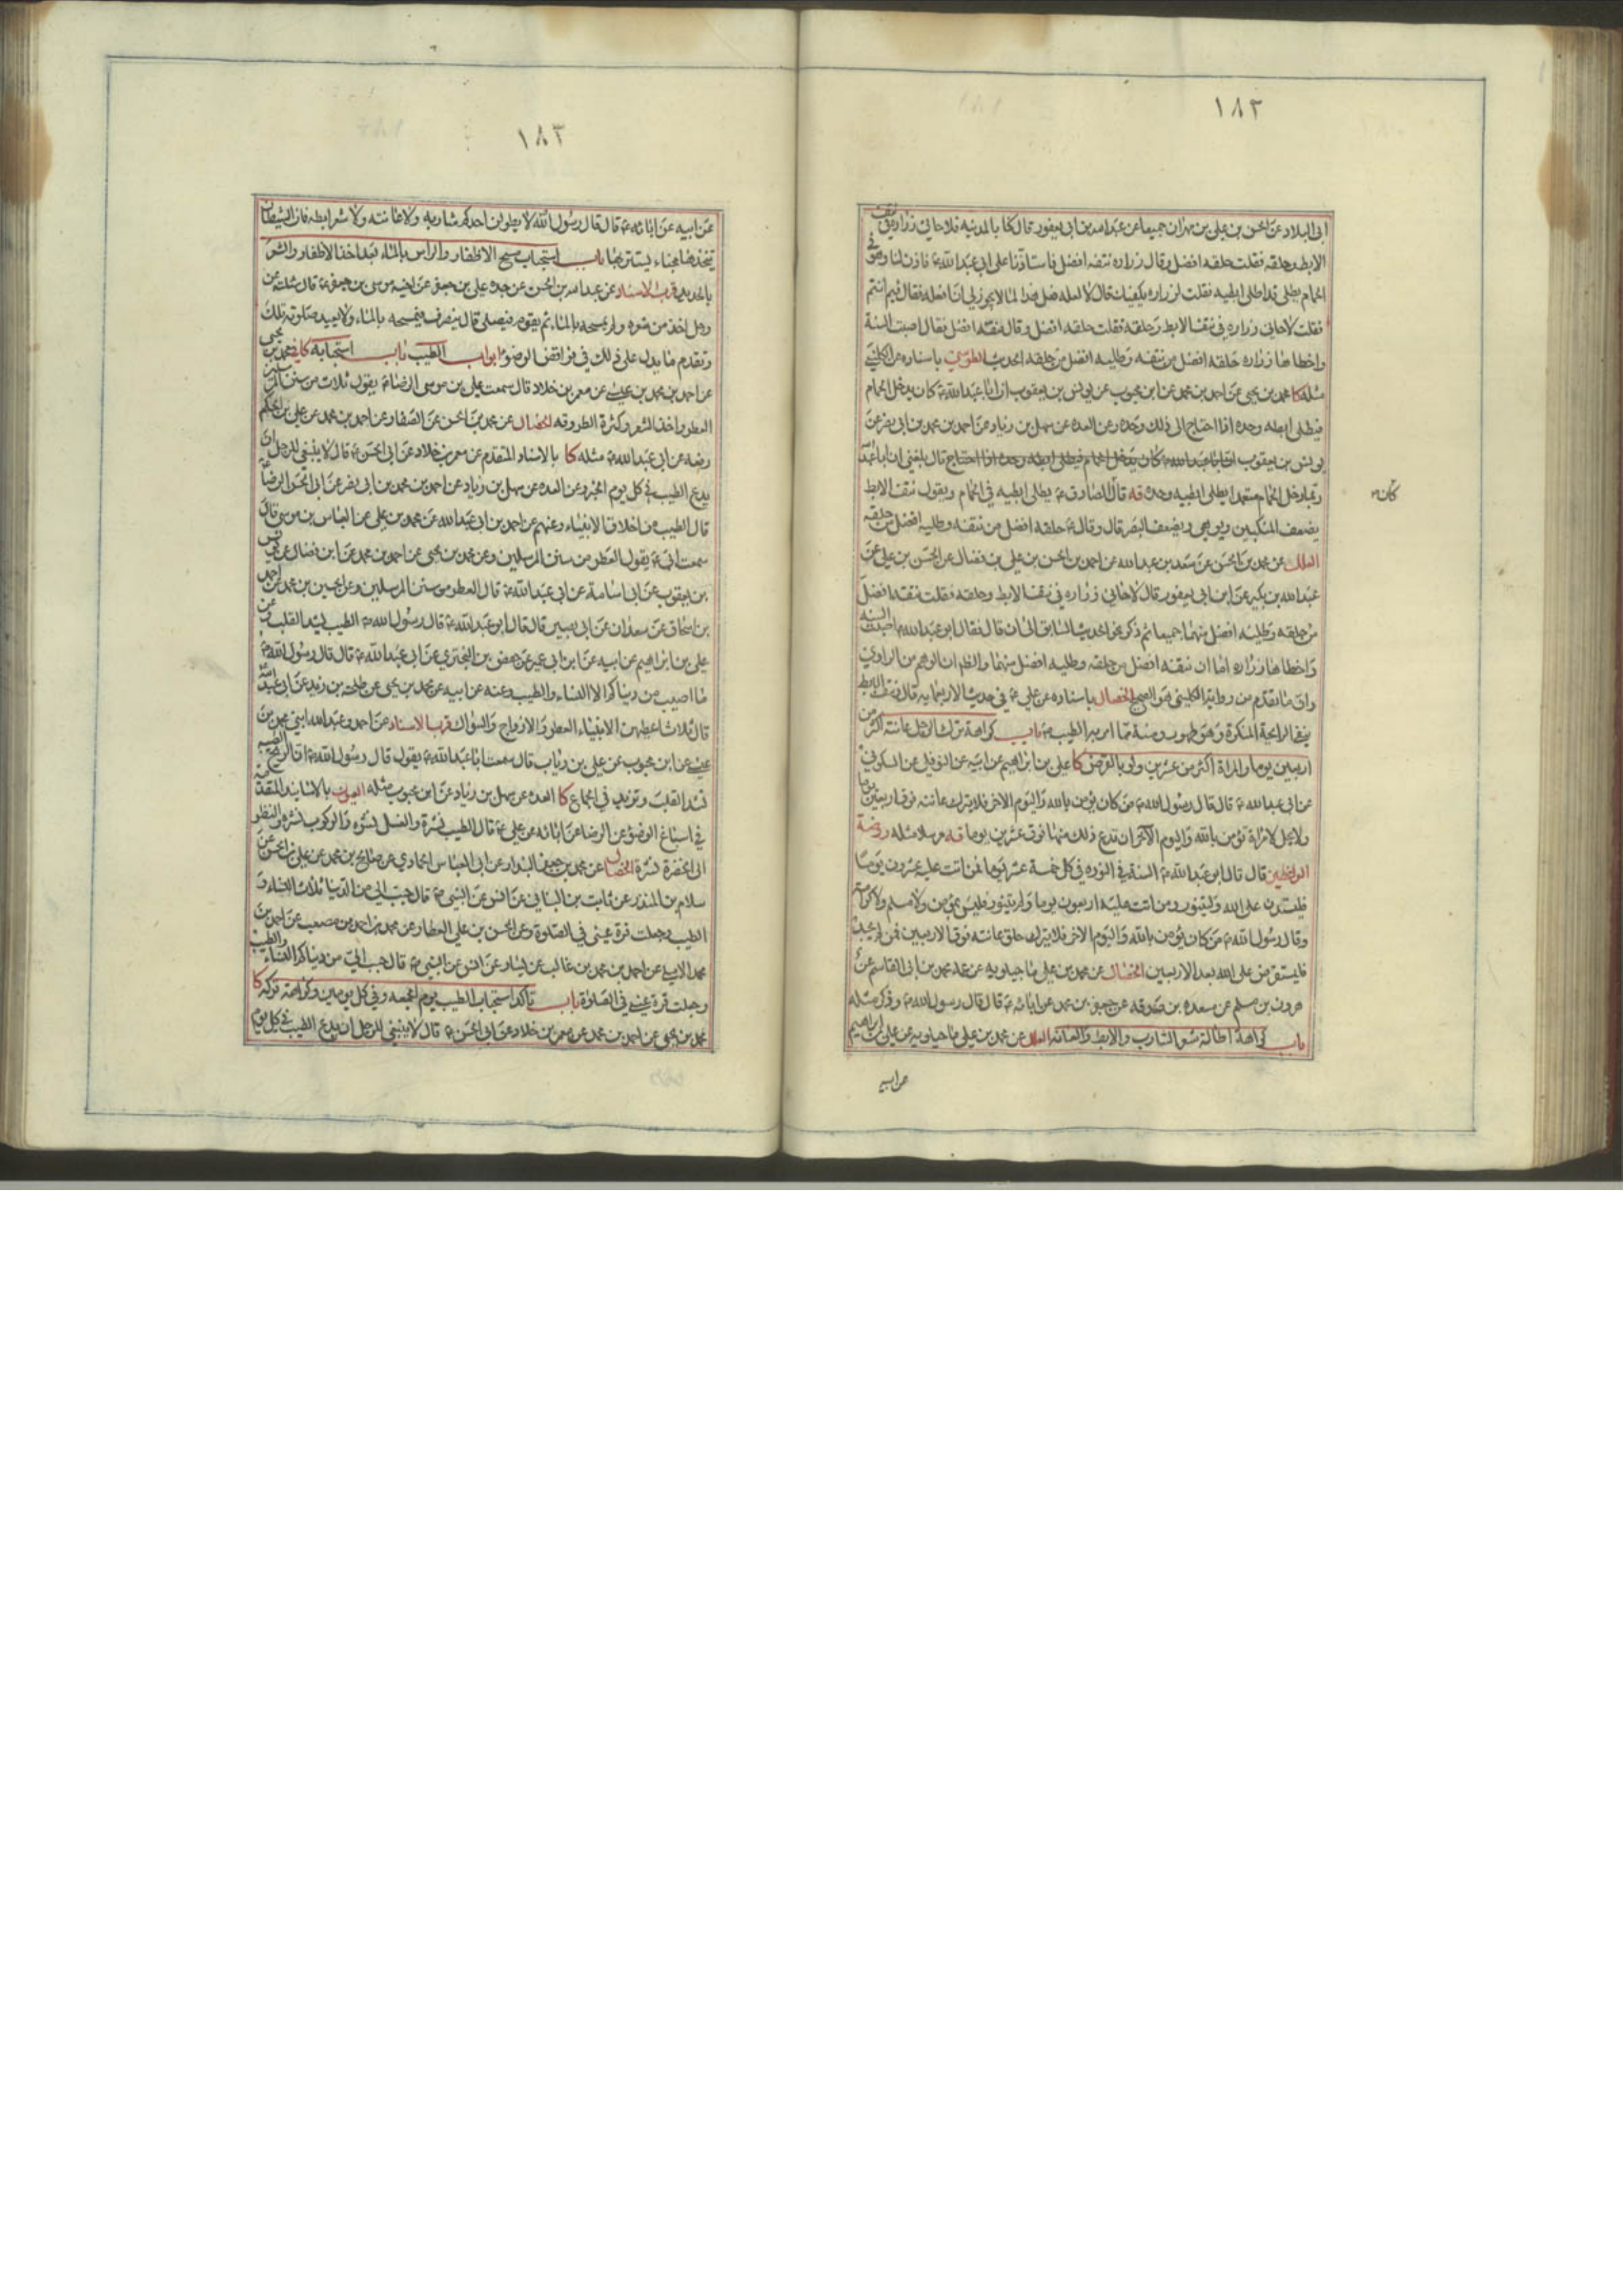 ١٨٢
ابى البلاد عن الحسن بن على بن مهران جميعا عن عبدالله بن ابى يعفور قال كنا بالمدينه فلاحانى زراره فى نتف
الابط وحلقه فقلت حلقه افضل وقال زراره نتفه افضل فاستاذنا على ابى عبدالله ع فاذن لنا وهو فى
الحمام يطلى قد اطلى ابطيه فقلت لزراره يكفيك قال لا لعله فعل هذا لما لا يجوز لى ان افعله فقال فيم انتم
فقلت لاحانى زراره فى نتف الابط وحلقه فقلت حلقه افضل وقال نتفه افضل فقال اصبت السنة
واخطاها زراره حلقه افضل من نتفه وطليه افضل من حلقه الحديث الطوسى باسناده عن الكلينى
مثله كا محمد بن يحيى عن احمد بن محمد عن ابن محبوب عن يونس بن يعقوب ان ابا عبدالله ع كان يدخل الحمام
فيطلى ابطه وحده اذا احتاج الى ذلك وحده وعن العده عن سهل بن زياد عن احمد بن محمد بن ابى نصر عن
يونس بن يعقوب ان ابا عبدالله ع كان يدخل الحمام فيطلى ابطه وحده اذا احتاج قال بلغنى ان ابا عبدالله
كان
ربما دخل الحمام متعمدا يطلى ابطيه وحده قه قال الصادق ع يطلى ابطيه فى الحمام ويقول نتف الابط
يضعف المنكبين ويوهى ويضعف البصر قال وقال ع حلقه افضل من نتفه وطليه افضل من حلقه
العلل عن محمد بن الحسن عن سعد بن عبدالله عن احمد بن الحسن بن على بن فضال عن الحسن بن على عن
عبدالله بن بكير عن ابن ابى يعفور قال لاحانى زراره فى نتف الابط وحلقه فقلت نتفه افضل
من حلقه وطليه افضل منهما جميعا ثم ذكر نحو الحديث السابق الى ان قال فقال ابو عبدالله ع اصبت السنه
واخطاها زراره اما ان نتفه افضل من حلقه وطليه افضل منهما والظاهر ان الوهم من الراوى
وان ما تقدم من رواية الكلينى هو الصحيح الخصال باسناده عن على ع فى حديث الاربعمايه قال نتف الابط
ينفى الرايحة المنكرة وهو طهور وسنة مما امر به الطيب ع باب كراهة ترك الرجل عانته اكثر من
اربعين يوما والمراة اكثر من عشرين ولو بالقرض كا على بن ابراهيم عن ابيه عن النوفلى عن السكونى
عن ابى عبدالله ع قال قال رسول الله ص من كان يؤمن بالله واليوم الاخر فلا يترك عانته فوق اربعين يوما
ولا يحل لامراة تؤمن بالله واليوم الآخر ان تدع ذلك منها فوق عشرين يوما قه مرسلا مثله روضة
الواعظين قال قال ابو عبدالله ع السنة فى النوره فى كل خمسة عشر يوما فمن اتت عليه عشرون يوما
فليستدن على الله وليتنور ومن اتت عليه اربعون يوما ولم يتنور فليس بمؤمن ولا مسلم ولا كرامة
وقال رسول الله ص من كان يؤمن بالله واليوم الاخر فلا يترك حلق عانته فوق الاربعين فمن لم يجد
فليستقرض على الله بعد الاربعين الخصال عن محمد بن على ماجيلويه عن عمه محمد بن ابى القاسم عن
هرون بن مسلم عن مسعده بن صدقه عن جعفر بن محمد عن ابائه ع قال قال رسول الله ص وذكر مثله
باب كراهة اطالة شعر الشارب والابط والعانه العلل عن محمد بن على ماجيلويه عن على بن ابراهيم
عن ابيه
١٨٣
عن ابيه عن ابائه ع قال قال رسول الله لا يطولن احدكم شاربه ولا عانته ولا شعر ابطه فان الشيطان
يتخذها مجناء يستتر بها باب استحباب مسح الاظفار والراس بالماء بعد اخذ الاظفار والشعر
بالحديد قرب الاسناد عن عبدالله بن الحسن عن جده على بن جعفر عن اخيه موسى بن جعفر ع قال سئلته عن
رجل اخذ من شعره ولم يمسحه بالماء ثم يقوم فيصلى قال ينصرف فيمسحه بالماء ولا يعيد صلوته تلك
وتقدم ما يدل على ذلك فى نواقض الوضوء ابواب الطيب باب استحبابه كا محمد بن يحيى
عن احمد بن محمد بن عيسى عن معمر بن خلاد قال سمعت على بن موسى الرضا ع يقول ثلاث من سنن المرسلين
العطر واخذ الشعر وكثرة الطروقه الخصال عن محمد بن الحسن عن الصفار عن احمد بن محمد عن على بن الحكم
رفعه عن ابى عبدالله ع مثله كا بالاسناد المتقدم عن معمر بن خلاد عن ابى الحسن ع قال لا ينبغى للرجل ان
يدع الطيب فى كل يوم الخبر وعن العده عن سهل بن زياد عن احمد بن محمد بن ابى نصر عن ابى الحسن الرضا ع
قال الطيب من اخلاق الانبياء وعنهم عن احمد بن ابى عبدالله عن محمد بن على عن العباس بن موسى قال
سمعت ابى ع يقول العطر من سنن المرسلين وعن محمد بن يحيى عن احمد بن محمد عن ابن فضال عن يونس
بن يعقوب عن ابى اسامة عن ابى عبدالله ع قال العطر من سنن المرسلين وعن الحسين بن محمد عن احمد
بن اسحاق عن سعدان عن ابى بصير قال قال ابو عبدالله ع قال رسول الله ص الطيب يشد القلب وعن
على بن ابراهيم عن ابيه عن ابن ابى عمير عن حفص بن البخترى عن ابى عبدالله ع قال قال رسول الله ص
ما اصيب من دنياكم الا النساء والطيب وعنه عن ابيه عن محمد بن يحيى عن طلحه بن زيد عن ابى عبدالله
قال ثلاث اعطيهن الانبياء العطر والازواج والسواك قرب الاسناد عن احمد وعبدالله ابنى محمد بن
عيسى عن ابن محبوب عن على بن رياب قال سمعت ابا عبدالله ع يقول قال رسول الله ص ان الريح الطيبه
تشد القلب وتزيد فى الجماع كا العده عن سهل بن زياد عن ابن محبوب مثله العيون بالاسانيد المتقدمة
فى اسباغ الوضوء عن الرضا عن ابائه عن على ع قال الطيب نشرة والغسل نشره والركوب نشره والنظر
الى الخضرة نشرة الخصال عن محمد بن جعفر البندار عن ابى العباس الحمادى عن صالح بن محمد عن على بن الحسن عن
سلام بن المنذر عن ثابت بن البنانى عن انس عن النبى ص قال حبب الى من الدنيا ثلاث النساء و
الطيب وجعلت قرة عينى فى الصلوة وعن الحسن بن على العطار عن محمد بن احمد بن مصعب عن احمد بن
محمد الاملى عن احمد بن محمد بن غالب عن يسار عن انس عن النبى ص قال حبب الى من دنياكم النساء والطيب
وجعلت قرة عينى فى الصلوة باب تأكد استحباب الطيب يوم الجمعه وفى كل يومين وكراهة تركه كا
محمد بن يحيى عن احمد بن محمد عن معمر بن خلاد عن ابى الحسن ع قال لا ينبغى للرجل ان يدع الطيب فى كل يوم